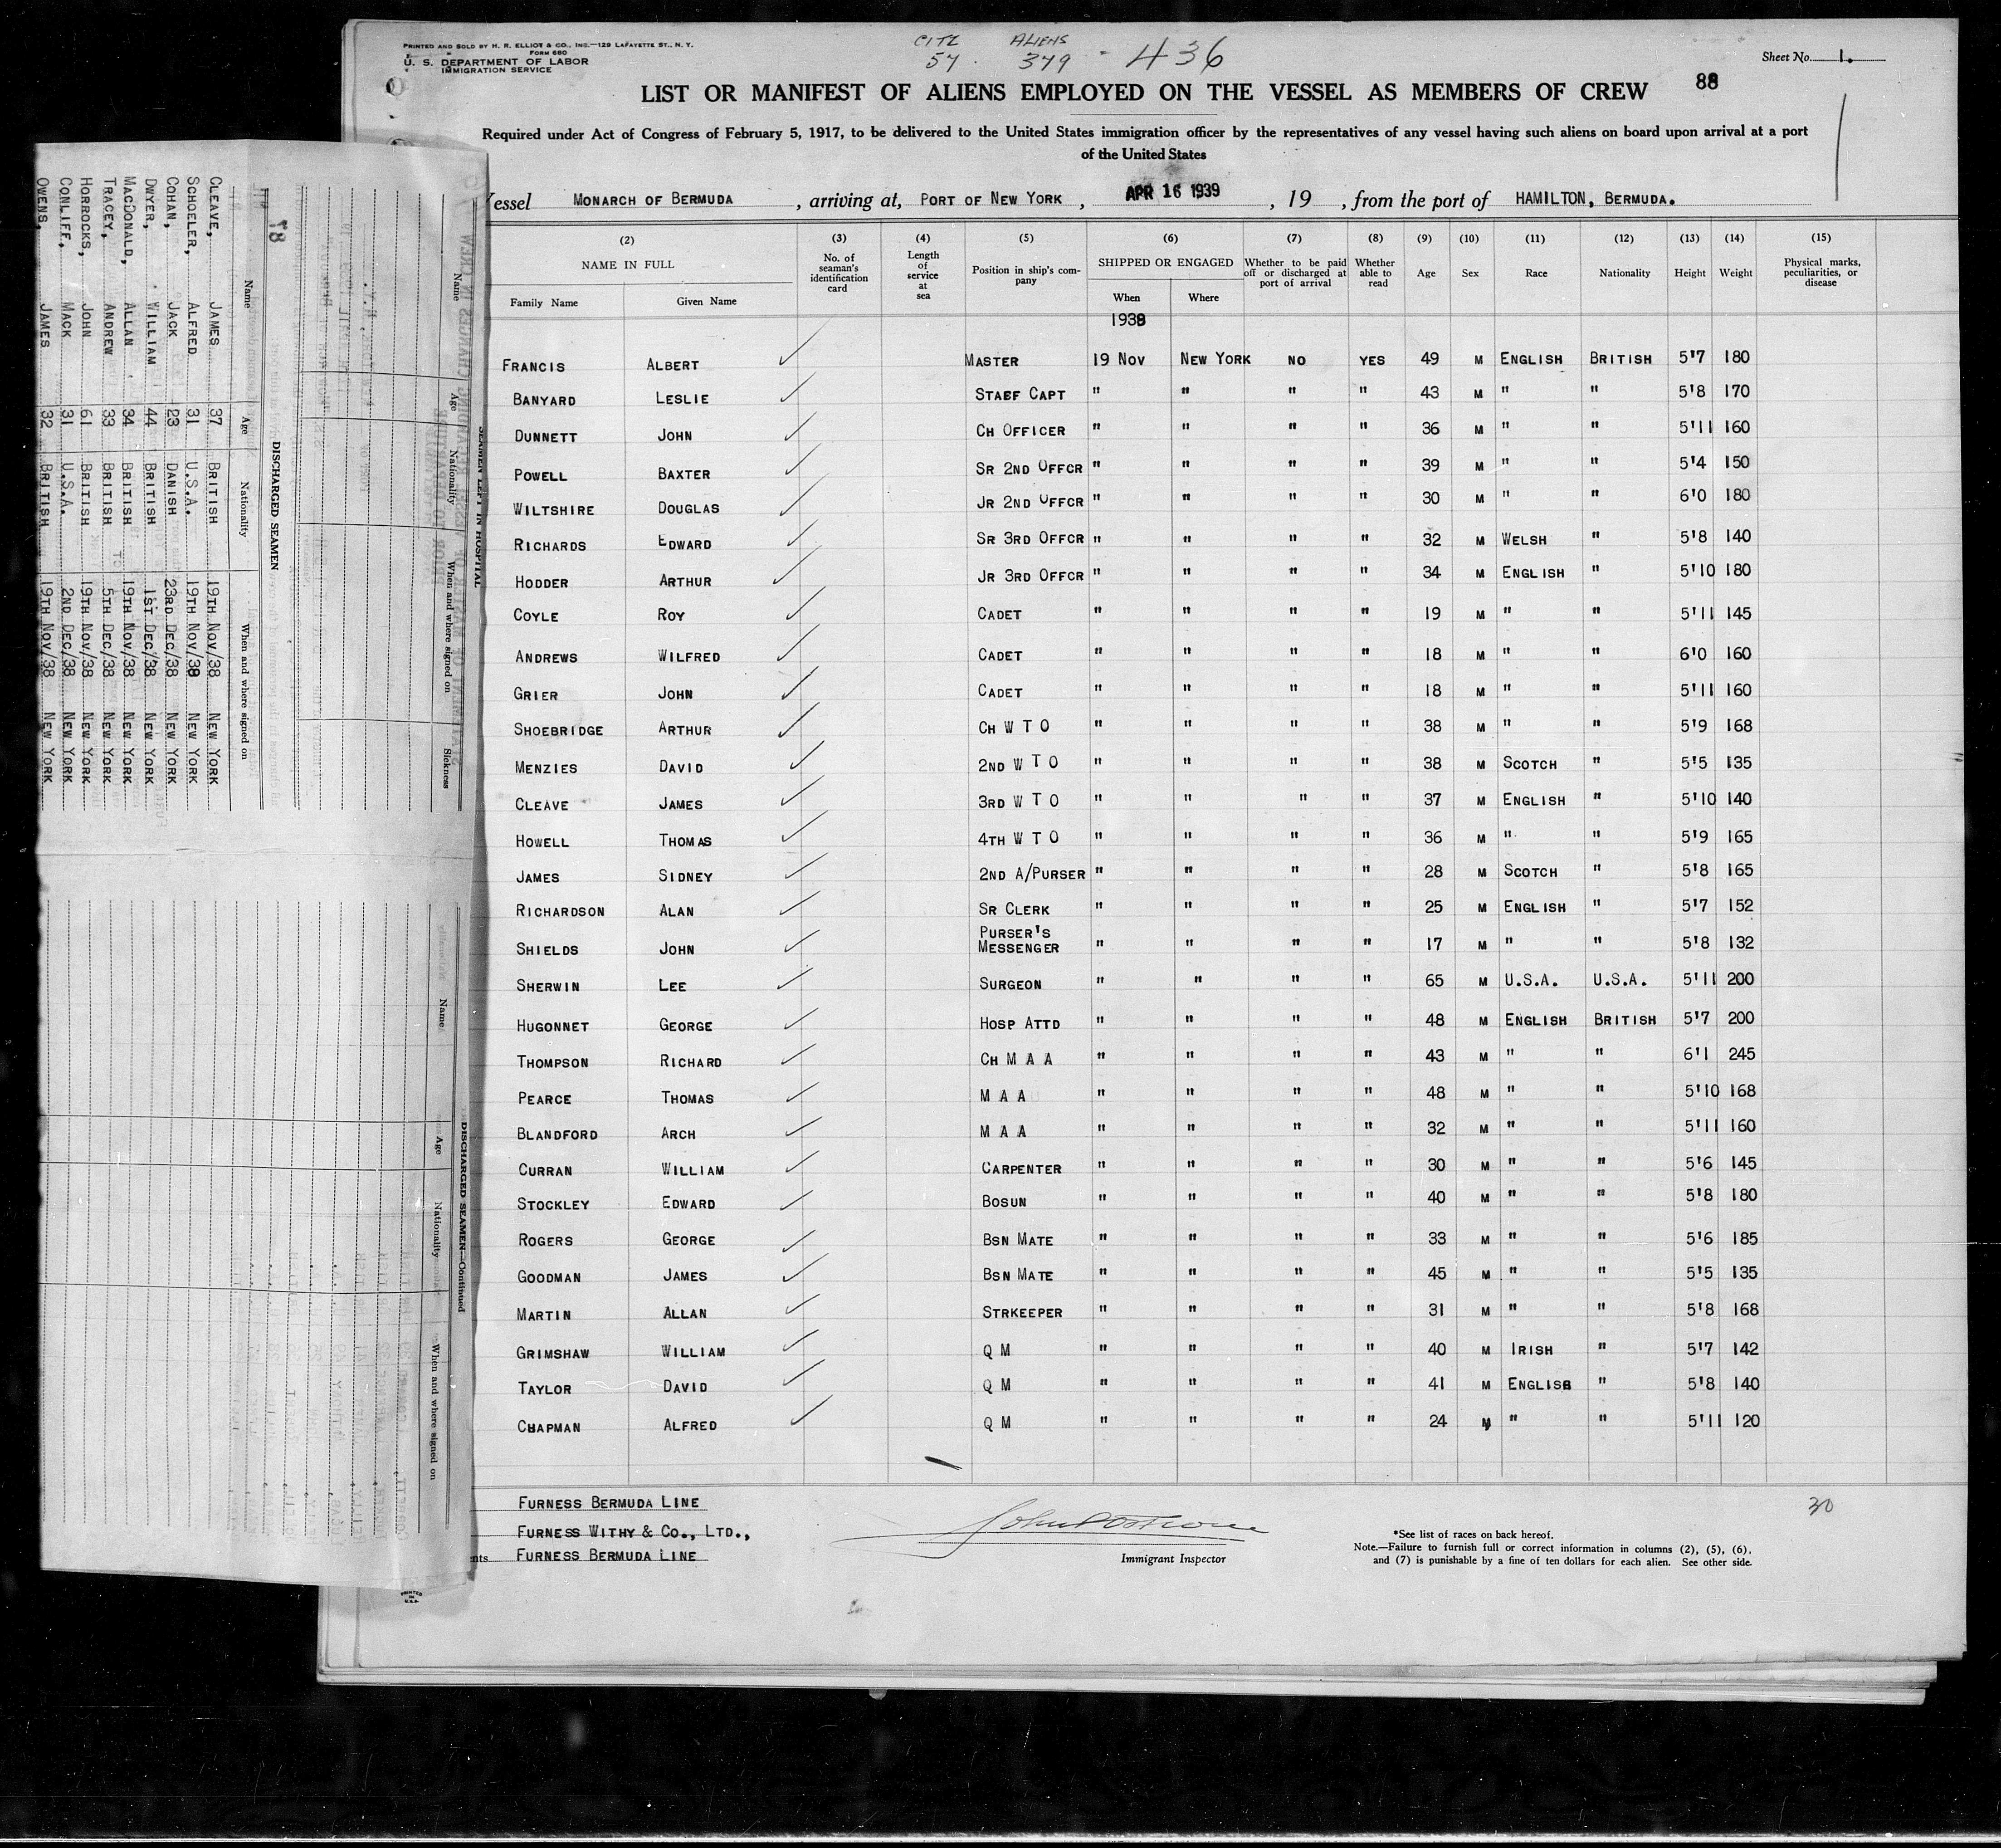 PRINTED AND SOLD BY H. R. ELLIOT & CO., INC.—129 LAFAYETTE ST., N. Y.
FORM 680
U. S. DEPARTMENT OF LABOR
IMMIGRATION SERVICE
CITZ ALIENS
57 379 - 436
Sheet No. 1.
88
LIST OR MANIFEST OF ALIENS EMPLOYED ON THE VESSEL AS MEMBERS OF CREW
Required under Act of Congress of February 5, 1917, to be delivered to the United States immigration officer by the representatives of any vessel having such aliens on board upon arrival at a port
of the United States
Vessel MONARCH OF BERMUDA, arriving at, PORT OF NEW YORK, APR 16 1939, 19 , from the port of HAMILTON, BERMUDA.
(2) (3) (4) (5) (6) (7) (8) (9) (10) (11) (12) (13) (14) (15)
NAME IN FULL No. of seaman's identification card Length of service at sea Position in ship's company SHIPPED OR ENGAGED Whether to be paid off or discharged at port of arrival Whether able to read Age Sex Race Nationality Height Weight Physical marks, peculiarities, or disease
Family Name Given Name When Where
1938
FRANCIS ALBERT MASTER 19 NOV NEW YORK NO YES 49 M ENGLISH BRITISH 5'7 180
BANYARD LESLIE STAFF CAPT " " " " 43 M " " 5'8 170
DUNNETT JOHN CH OFFICER " " " " 36 M " " 5'11 160
POWELL BAXTER SR 2ND OFFCR " " " " 39 M " " 5'4 150
WILTSHIRE DOUGLAS JR 2ND OFFCR " " " " 30 M " " 6'0 180
RICHARDS EDWARD SR 3RD OFFCR " " " " 32 M WELSH " 5'8 140
HODDER ARTHUR JR 3RD OFFCR " " " " 34 M ENGLISH " 5'10 180
COYLE ROY CADET " " " " 19 M " " 5'11 145
ANDREWS WILFRED CADET " " " " 18 M " " 6'0 160
GRIER JOHN CADET " " " " 18 M " " 5'11 160
SHOEBRIDGE ARTHUR CH W T O " " " " 38 M " " 5'9 168
MENZIES DAVID 2ND W T O " " " " 38 M SCOTCH " 5'5 135
CLEAVE JAMES 3RD W T O " " " " 37 M ENGLISH " 5'10 140
HOWELL THOMAS 4TH W T O " " " " 36 M " " 5'9 165
JAMES SIDNEY 2ND A/PURSER " " " " 28 M SCOTCH " 5'8 165
RICHARDSON ALAN SR CLERK " " " " 25 M ENGLISH " 5'7 152
SHIELDS JOHN PURSER'S MESSENGER " " " " 17 M " " 5'8 132
SHERWIN LEE SURGEON " " " " 65 M U.S.A. U.S.A. 5'11 200
HUGONNET GEORGE HOSP ATTD " " " " 48 M ENGLISH BRITISH 5'7 200
THOMPSON RICHARD CH M A A " " " " 43 M " " 6'1 245
PEARCE THOMAS M A A " " " " 48 M " " 5'10 168
BLANDFORD ARCH M A A " " " " 32 M " " 5'11 160
CURRAN WILLIAM CARPENTER " " " " 30 M " " 5'6 145
STOCKLEY EDWARD BOSUN " " " " 40 M " " 5'8 180
ROGERS GEORGE BSN MATE " " " " 33 M " " 5'6 185
GOODMAN JAMES BSN MATE " " " " 45 M " " 5'5 135
MARTIN ALLAN STRKEEPER " " " " 31 M " " 5'8 168
GRIMSHAW WILLIAM Q M " " " " 40 M IRISH " 5'7 142
TAYLOR DAVID Q M " " " " 41 M ENGLISH " 5'8 140
CHAPMAN ALFRED Q M " " " " 24 M " " 5'11 120
FURNESS BERMUDA LINE
FURNESS WITHY & CO., LTD.,
FURNESS BERMUDA LINE
Immigrant Inspector
30
*See list of races on back hereof.
Note.—Failure to furnish full or correct information in columns (2), (5), (6),
and (7) is punishable by a fine of ten dollars for each alien. See other side.
PRINTED IN U.S.A.
SEAMEN LEFT IN HOSPITAL
Name Age Nationality When and where signed on Sickness
87
DISCHARGED SEAMEN
Name Age Nationality When and where signed on
CLEAVE, JAMES 37 BRITISH 19TH NOV/38 NEW YORK
SCHOELER, ALFRED 31 U.S.A. 19TH NOV/38 NEW YORK
COHAN, JACK 23 DANISH 23RD DEC/38 NEW YORK
DWYER, WILLIAM 44 BRITISH 1ST DEC/38 NEW YORK
MACDONALD, ALLAN 34 BRITISH 19TH NOV/38 NEW YORK
TRACEY, ANDREW 33 BRITISH 5TH DEC/38 NEW YORK
HORROCKS, JOHN 61 BRITISH 19TH NOV/38 NEW YORK
CONLIFF, MACK 31 U.S.A. 2ND DEC/38 NEW YORK
OWENS, JAMES 32 BRITISH 19TH NOV/38 NEW YORK
DISCHARGED SEAMEN—Continued
Name Age Nationality When and where signed on